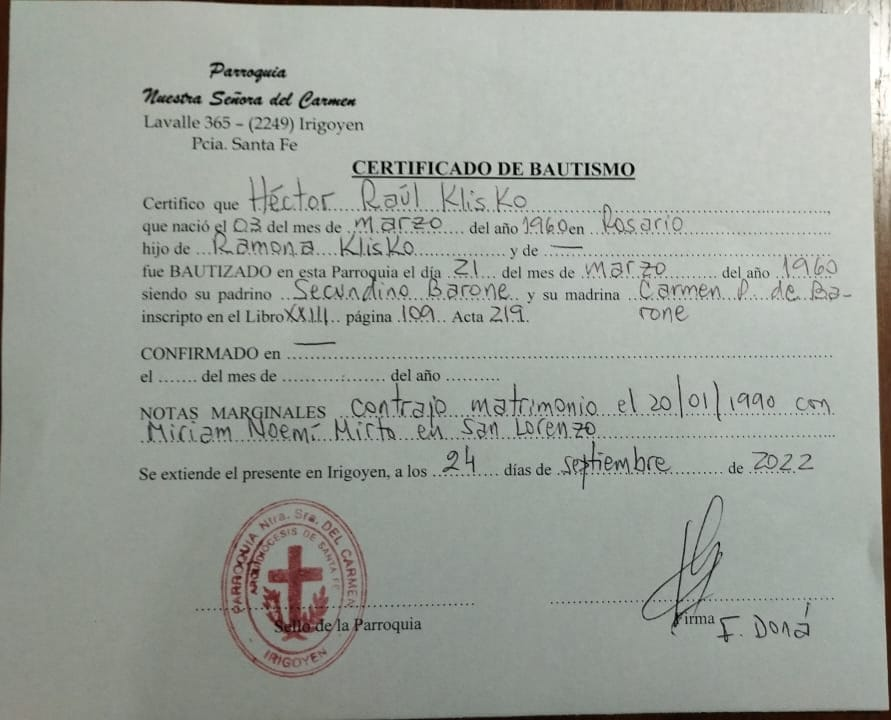 Parroquia
Nuestra Señora del Carmen
Lavalle 365 – (2249) Irigoyen
Pcia. Santa Fe
CERTIFICADO DE BAUTISMO
Certifico que Héctor Raúl Klisko
que nació el 03 del mes de marzo del año 1960 en Rosario
hijo de Ramona Klisko y de —
fue BAUTIZADO en esta Parroquia el día 21 del mes de marzo del año 1960
siendo su padrino Secundino Barone y su madrina Carmen P. de Ba-
inscripto en el Libro XXIII página 109 Acta 219. rone
CONFIRMADO en —
el ....... del mes de .................. del año ..........
NOTAS MARGINALES contrajo matrimonio el 20/01/1990 con
Miriam Noemí Mirto en San Lorenzo
Se extiende el presente en Irigoyen, a los 24 días de septiembre de 2022
PARROQUIA Ntra. Sra. DEL CARMEN
ARQUIDIOCESIS DE SANTA FE
IRIGOYEN
Sello de la Parroquia
Firma
F. Doná